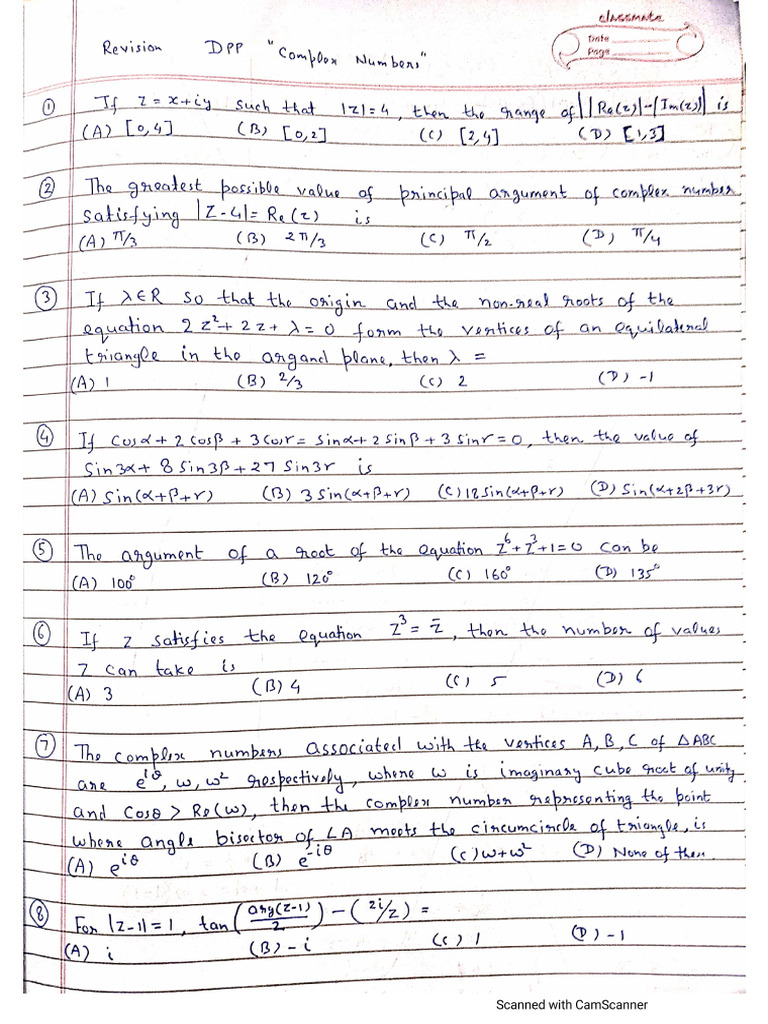 classmate
Date
Page
Revision DPP "Complex Numbers"
① If z = x+iy such that |z|=4, then the range of ||Re(z)|-|Im(z)|| is
(A) [0,4] (B) [0,2] (C) [2,4] (D) [1,3]
② The greatest possible value of principal argument of complex number
satisfying |z-4|= Re(z) is
(A) π/3 (B) 2π/3 (C) π/2 (D) π/4
③ If λ∈R so that the origin and the non-real roots of the
equation 2z²+2z+λ=0 form the vertices of an equilateral
triangle in the argand plane, then λ =
(A) 1 (B) 2/3 (C) 2 (D) -1
④ If cosα+2cosβ+3cosr = sinα+2sinβ+3sinr=0, then the value of
Sin3α+ 8 Sin3β+27 Sin3r is
(A) Sin(α+β+r) (B) 3 Sin(α+β+r) (C) 18 Sin(α+β+r) (D) Sin(α+2β+3r)
⑤ The argument of a root of the equation z⁶+z³+1=0 can be
(A) 100° (B) 120° (C) 160° (D) 135°
⑥ If z satisfies the equation z³ = z̄, then the number of values
z can take is
(A) 3 (B) 4 (C) 5 (D) 6
⑦ The complex numbers associated with the vertices A, B, C of △ABC
are e^iθ, w, w² respectively, where w is imaginary cube root of unity
and Cosθ > Re(w), then the complex number representing the point
where angle bisector of ∠A meets the circumcircle of triangle, is
(A) e^iθ (B) e^-iθ (C) w+w² (D) None of then.
⑧ For |z-1|=1, tan(arg(z-1)/2) - (2i/z) =
(A) i (B) -i (C) 1 (D) -1
Scanned with CamScanner